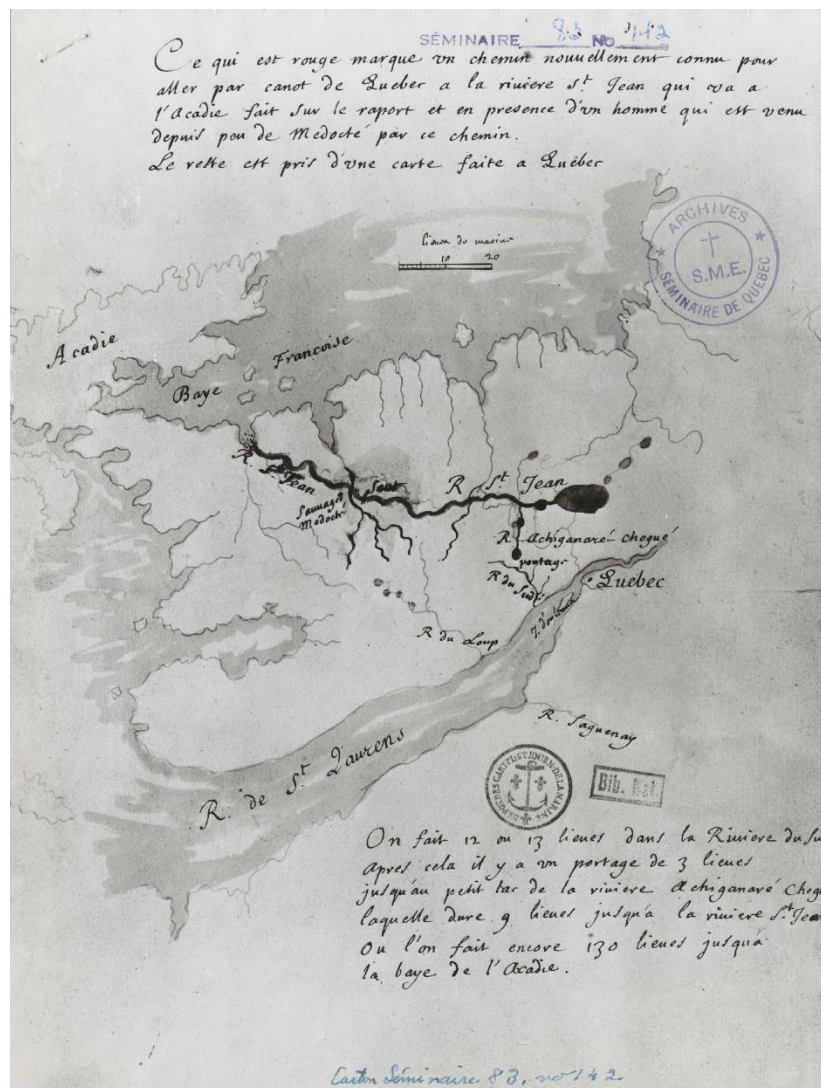 SÉMINAIRE 83 No 142
Ce qui est rouge marque vn chemin nouuellement connu pour
aller par canot de Quebec a la riuiere St. Jean qui va a
l'Acadie fait sur le raport et en presence d'vn homme qui est venu
depuis peu de Medocté par ce chemin.
Le reste est pris d'vne carte faite a Québec
lieues de marine
10 20
ARCHIVES
S.M.E.
SÉMINAIRE DE QUÉBEC
Acadie
Baye Françoise
R. St. Jean
Sauuages
Medocté
Saut
R St. Jean
R. Achiganaré-chegué
portage
R du Sud
Québec
R du Loup
R. Saguenay
R. de St Laurens
Bib. Nat.
On fait 12 ou 13 lieues dans la Riuiere du Su
Apres cela il y a vn portage de 3 lieues
jusqu'au petit lac de la riuiere Achiganaré Cheg
laquelle dure 9 lieues jusqu'a la riuiere St. Jean
Ou l'on fait encore 130 lieues jusqu'a
la baye de l'Acadie.
Carton Séminaire 83, no 142